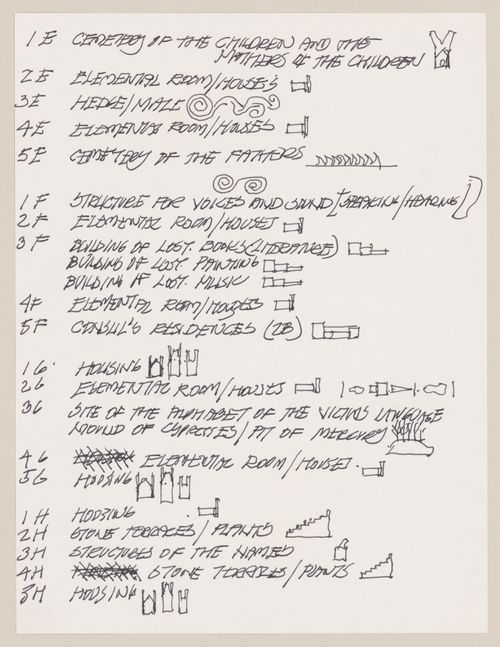 1 E CEMETERY OF THE CHILDREN AND THE
MATHERS OF THE CHILDREN
2 E ELEMENTAL ROOM/HOUSE'S
3E HEDGE/MAZE
4E ELEMENTAL ROOM/HOUSES
5E CEMETERY OF THE FATHERS
1 F STRUCTURE FOR VOICES AND SOUND [SPEAKING/HEARING]
2 F ELEMENTAL ROOM/HOUSES
3 F BUILDING OF LOST BOOKS (LITERATURE)
BUILDING OF LOST PAINTING
BUILDING OF LOST MUSIC
4F ELEMENTAL ROOM/HOUSES
5F CONSUL'S RESIDENCES (2B)
1 G HOUSING
2G ELEMENTAL ROOM/HOUSES
3G SITE OF THE ALPHABET OF THE VICTIMS LANGUAGE
MOULD OF CYPRESSES/PIT OF MERCURY
4G ELEMENTAL ROOM/HOUSES.
5G HOUSING
1 H HOUSING
2H STONE TERRACES/PLANTS
3H STRUCTURES OF THE NAMES
4H STONE TERRACES/PLANTS
5H HOUSING